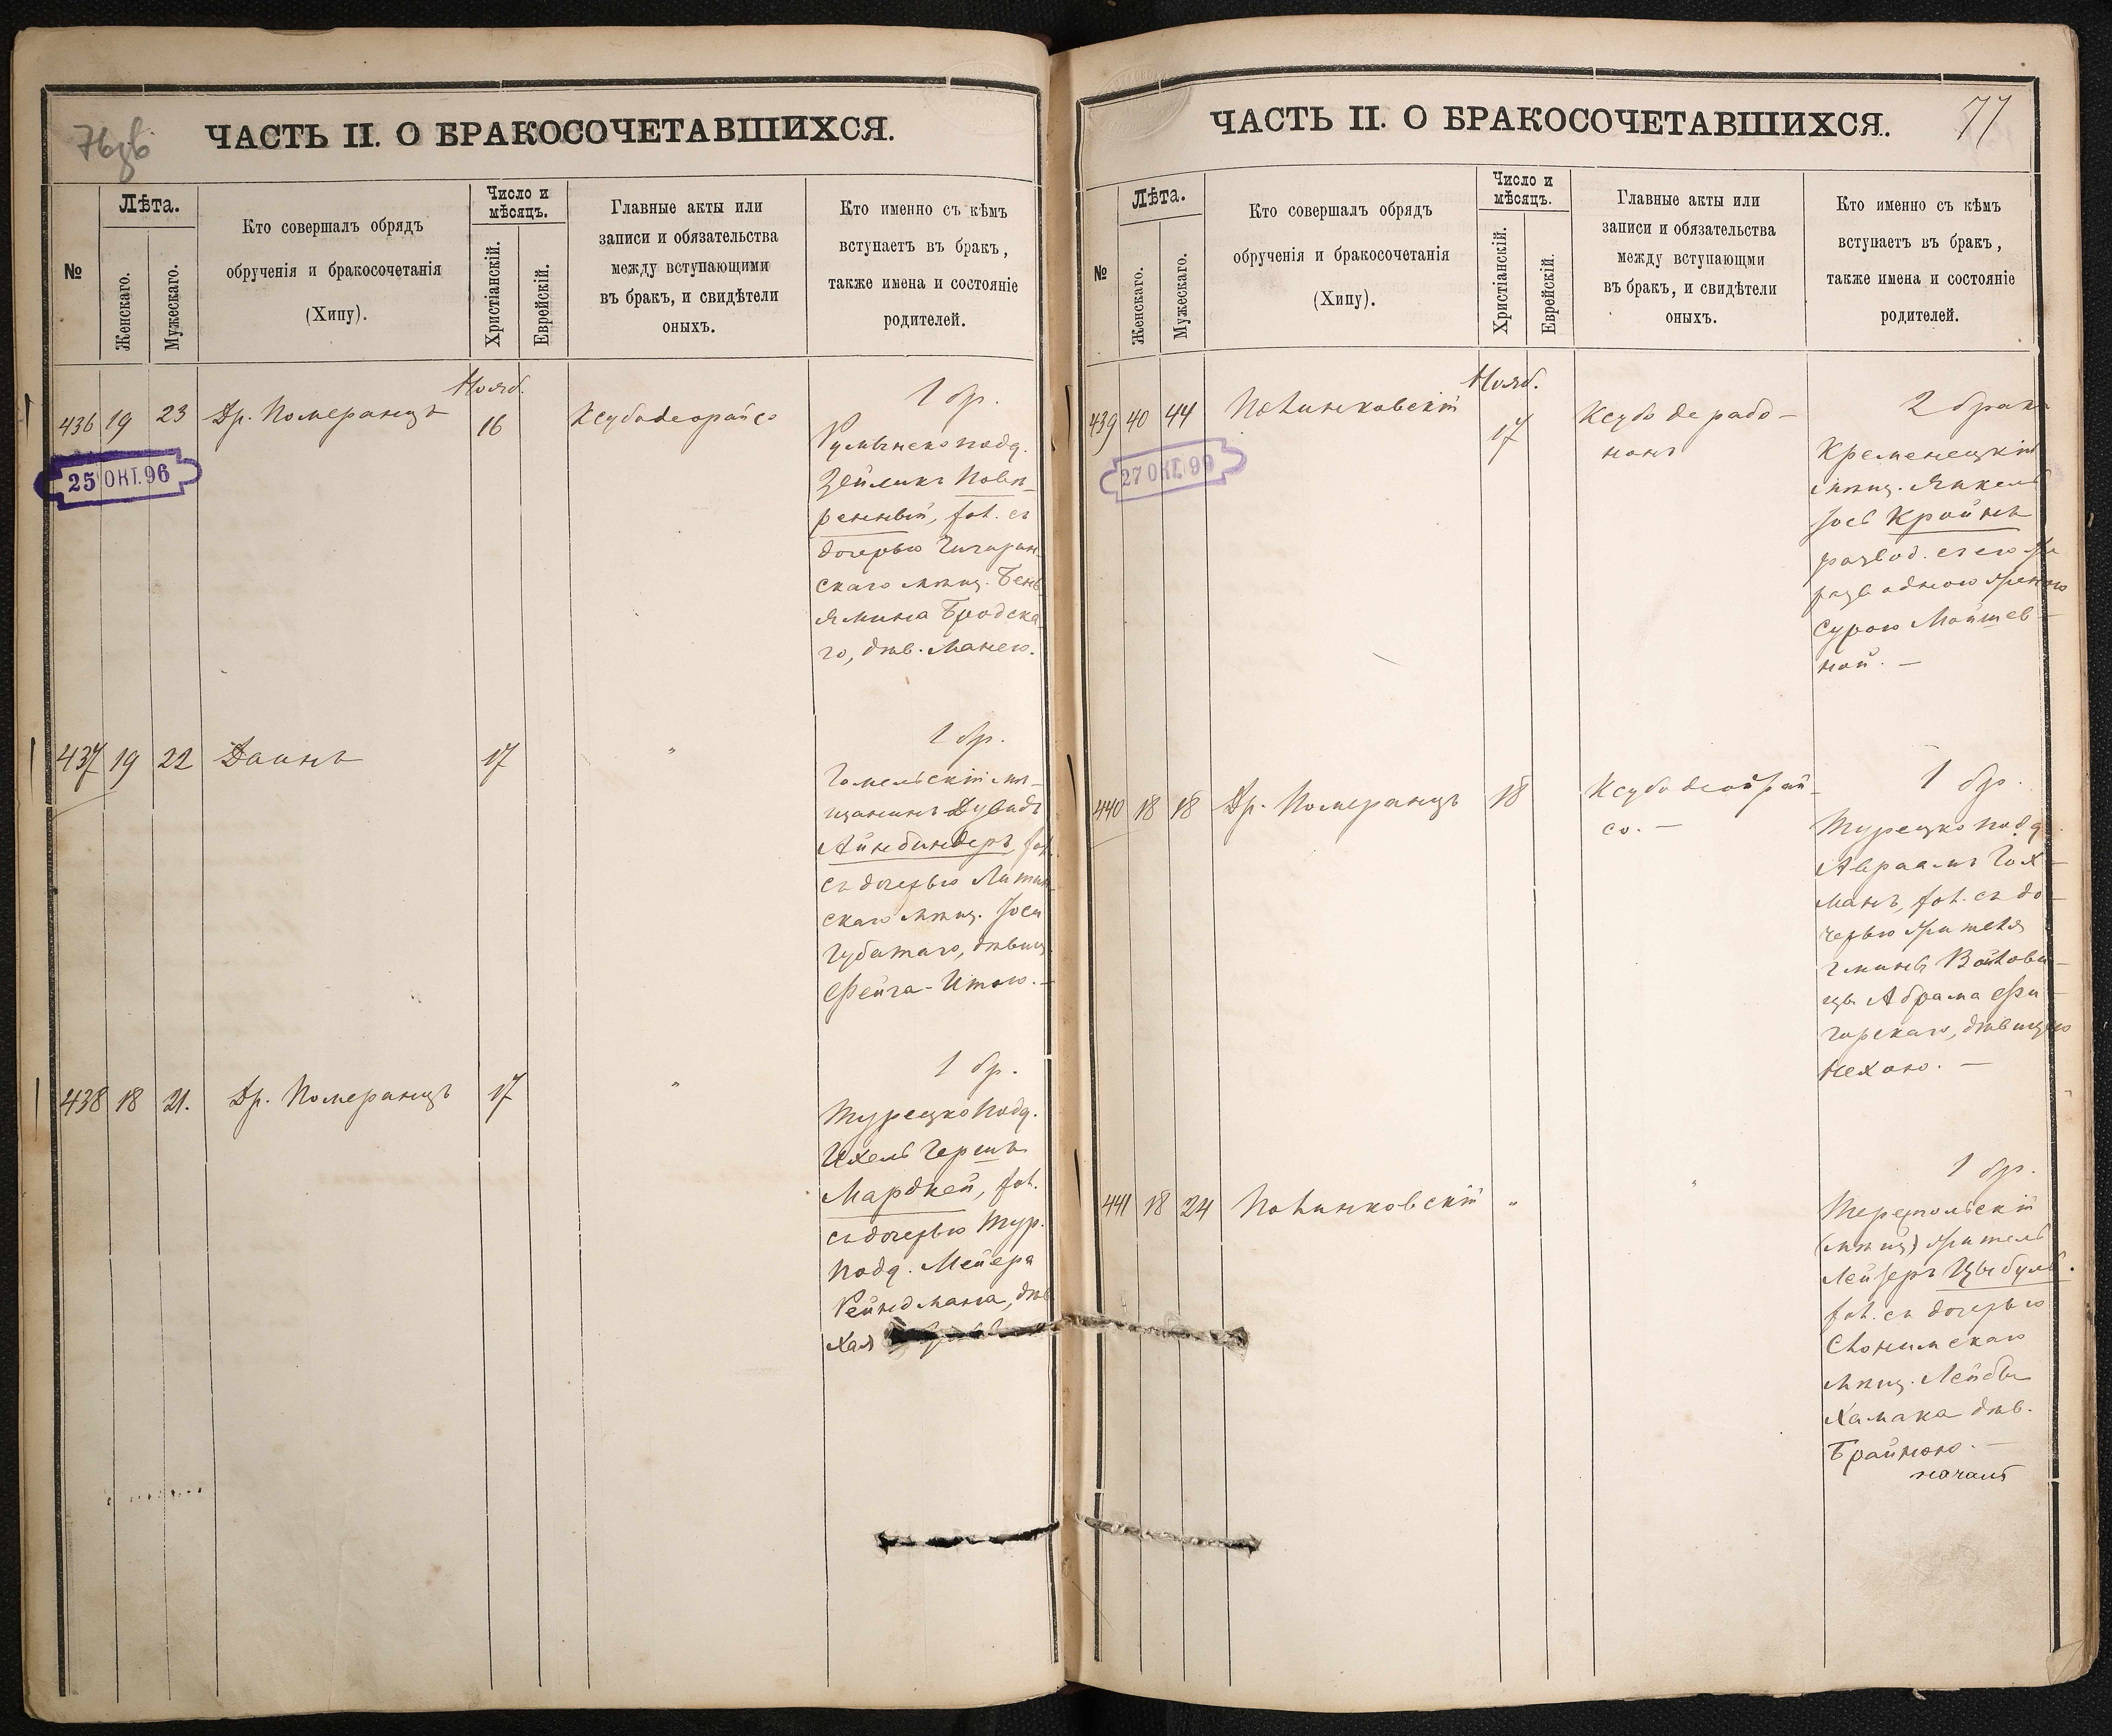 76об
ЧАСТЬ II. О БРАКОСОЧЕТАВШИХСЯ.
№
Лѣта.
Женскаго.
Мужескаго.
Кто совершалъ обрядъ
обрученія и бракосочетанія
(Хипу).
Число и
мѣсяцъ.
Христіанскій.
Еврейскій.
Главные акты или
записи и обязательства
между вступающими
въ бракъ, и свидѣтели
оныхъ.
Кто именно съ кѣмъ
вступаетъ въ бракъ,
также имена и состояніе
родителей.
436 19 23 Др. Померанцъ
Нояб.
16
Ксубадеорайсо
1 бр.
Румынско подд.
Зейликъ
хол. съ
дочерью Чигирин-
скаго мѣщ. Бень-
ямина Бродска-
го, дѣв. Манею.
25 ОКТ. 96
437 19 22 Даинъ 17 "
1 бр.
Гомельскій мѣ-
щанинъ Дувидъ
Айнбиндеръ, хол.
съ дочерью Литин-
скаго мѣщ. Іося
Губатаго, дѣвиц.
Фейга-Итою. —
438 18 21. Др. Померанцъ 17 "
1 бр.
Турецко подд.
Ихель Гершъ
Мардкей, хол.
съ дочерью Тур.
подд. Мейера
дѣв.
Хая
77
ЧАСТЬ II. О БРАКОСОЧЕТАВШИХСЯ.
№
Лѣта.
Женскаго.
Мужескаго.
Кто совершалъ обрядъ
обрученія и бракосочетанія
(Хипу).
Число и
мѣсяцъ.
Христіанскій.
Еврейскій.
Главные акты или
записи и обязательства
между вступающми
въ бракъ, и свидѣтели
оныхъ.
Кто именно съ кѣмъ
вступаетъ въ бракъ,
также имена и состояніе
родителей.
439 40 44 Полинковскій
Нояб.
17
Ксубо де рабо-
нонъ
2 бракъ
Кременецкій
мѣщ. Янкель
Іось Кройнъ
развод. съ его же
разводною женою
Сурою Мойшев-
ной. —
27 ОКТ. 99
440 18 18 Др. Померанцъ 18
Ксубо деойрай-
со. —
1 бр.
Турецко подд.
Авраамъ Гох-
манъ, хол. съ до-
черью жителя
гмины
Абрама Фи-
гурскаго, дѣвицею
Нехою. —
441 18 24 Полинковскій " "
1 бр.
Тереспольскій
(мѣщ) житель
Лейзеръ Цыбуль.
хол. съ дочерью
Слонимскаго
мѣщ. Лейбы
Хамака дѣв.
Брайною. —